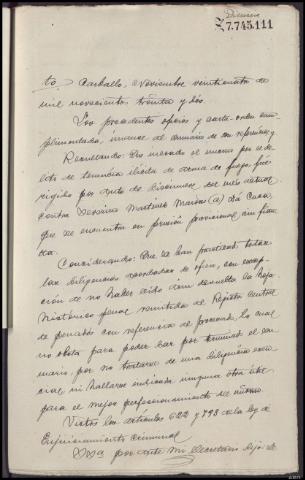 7.745.111
to. Carballo, Noviembre veintiocho de
mil novecientos treinta y dos.
Los precedentes oficios y carta-orden cum-
plimentada, únanse al sumario de su referencia y
Resultando: Que incoado el mismo por el de-
lito de tenencia ilícita de arma de fuego fué
dirigido por auto de del mes actual
contra Martinez (a) da Cana,
que se encuentra en prisión provisional sin fian-
za.
Considerando: Que se han practicado todas
las diligencias acordadas de oficio, con excep-
ción de no haber sido aun devuelta la hoja
histórico penal remitida al Registro Central
de penados con referencia al procesado, lo cual
no obsta para poder dar por terminado el su-
mario, por no tratarse de una diligencia esen-
cial ni hallarse indicada ninguna otra útil
para el mejor perfeccionamiento del mismo.
Vistos los artículos 622 y 798 de la ley de
Enjuiciamiento criminal
S.Sª por ante mi Secretario dijo: Se